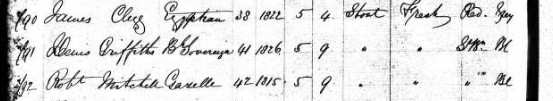 90 James Clegg Egyptian 38 1822 5 4 Stout Fresh Red. Grey
91 Denis Griffiths B Sovereign 41 1826 5 9 " " Bl
92 Robt Mitchell Gazelle 42 1815 5 9 " " " Bl